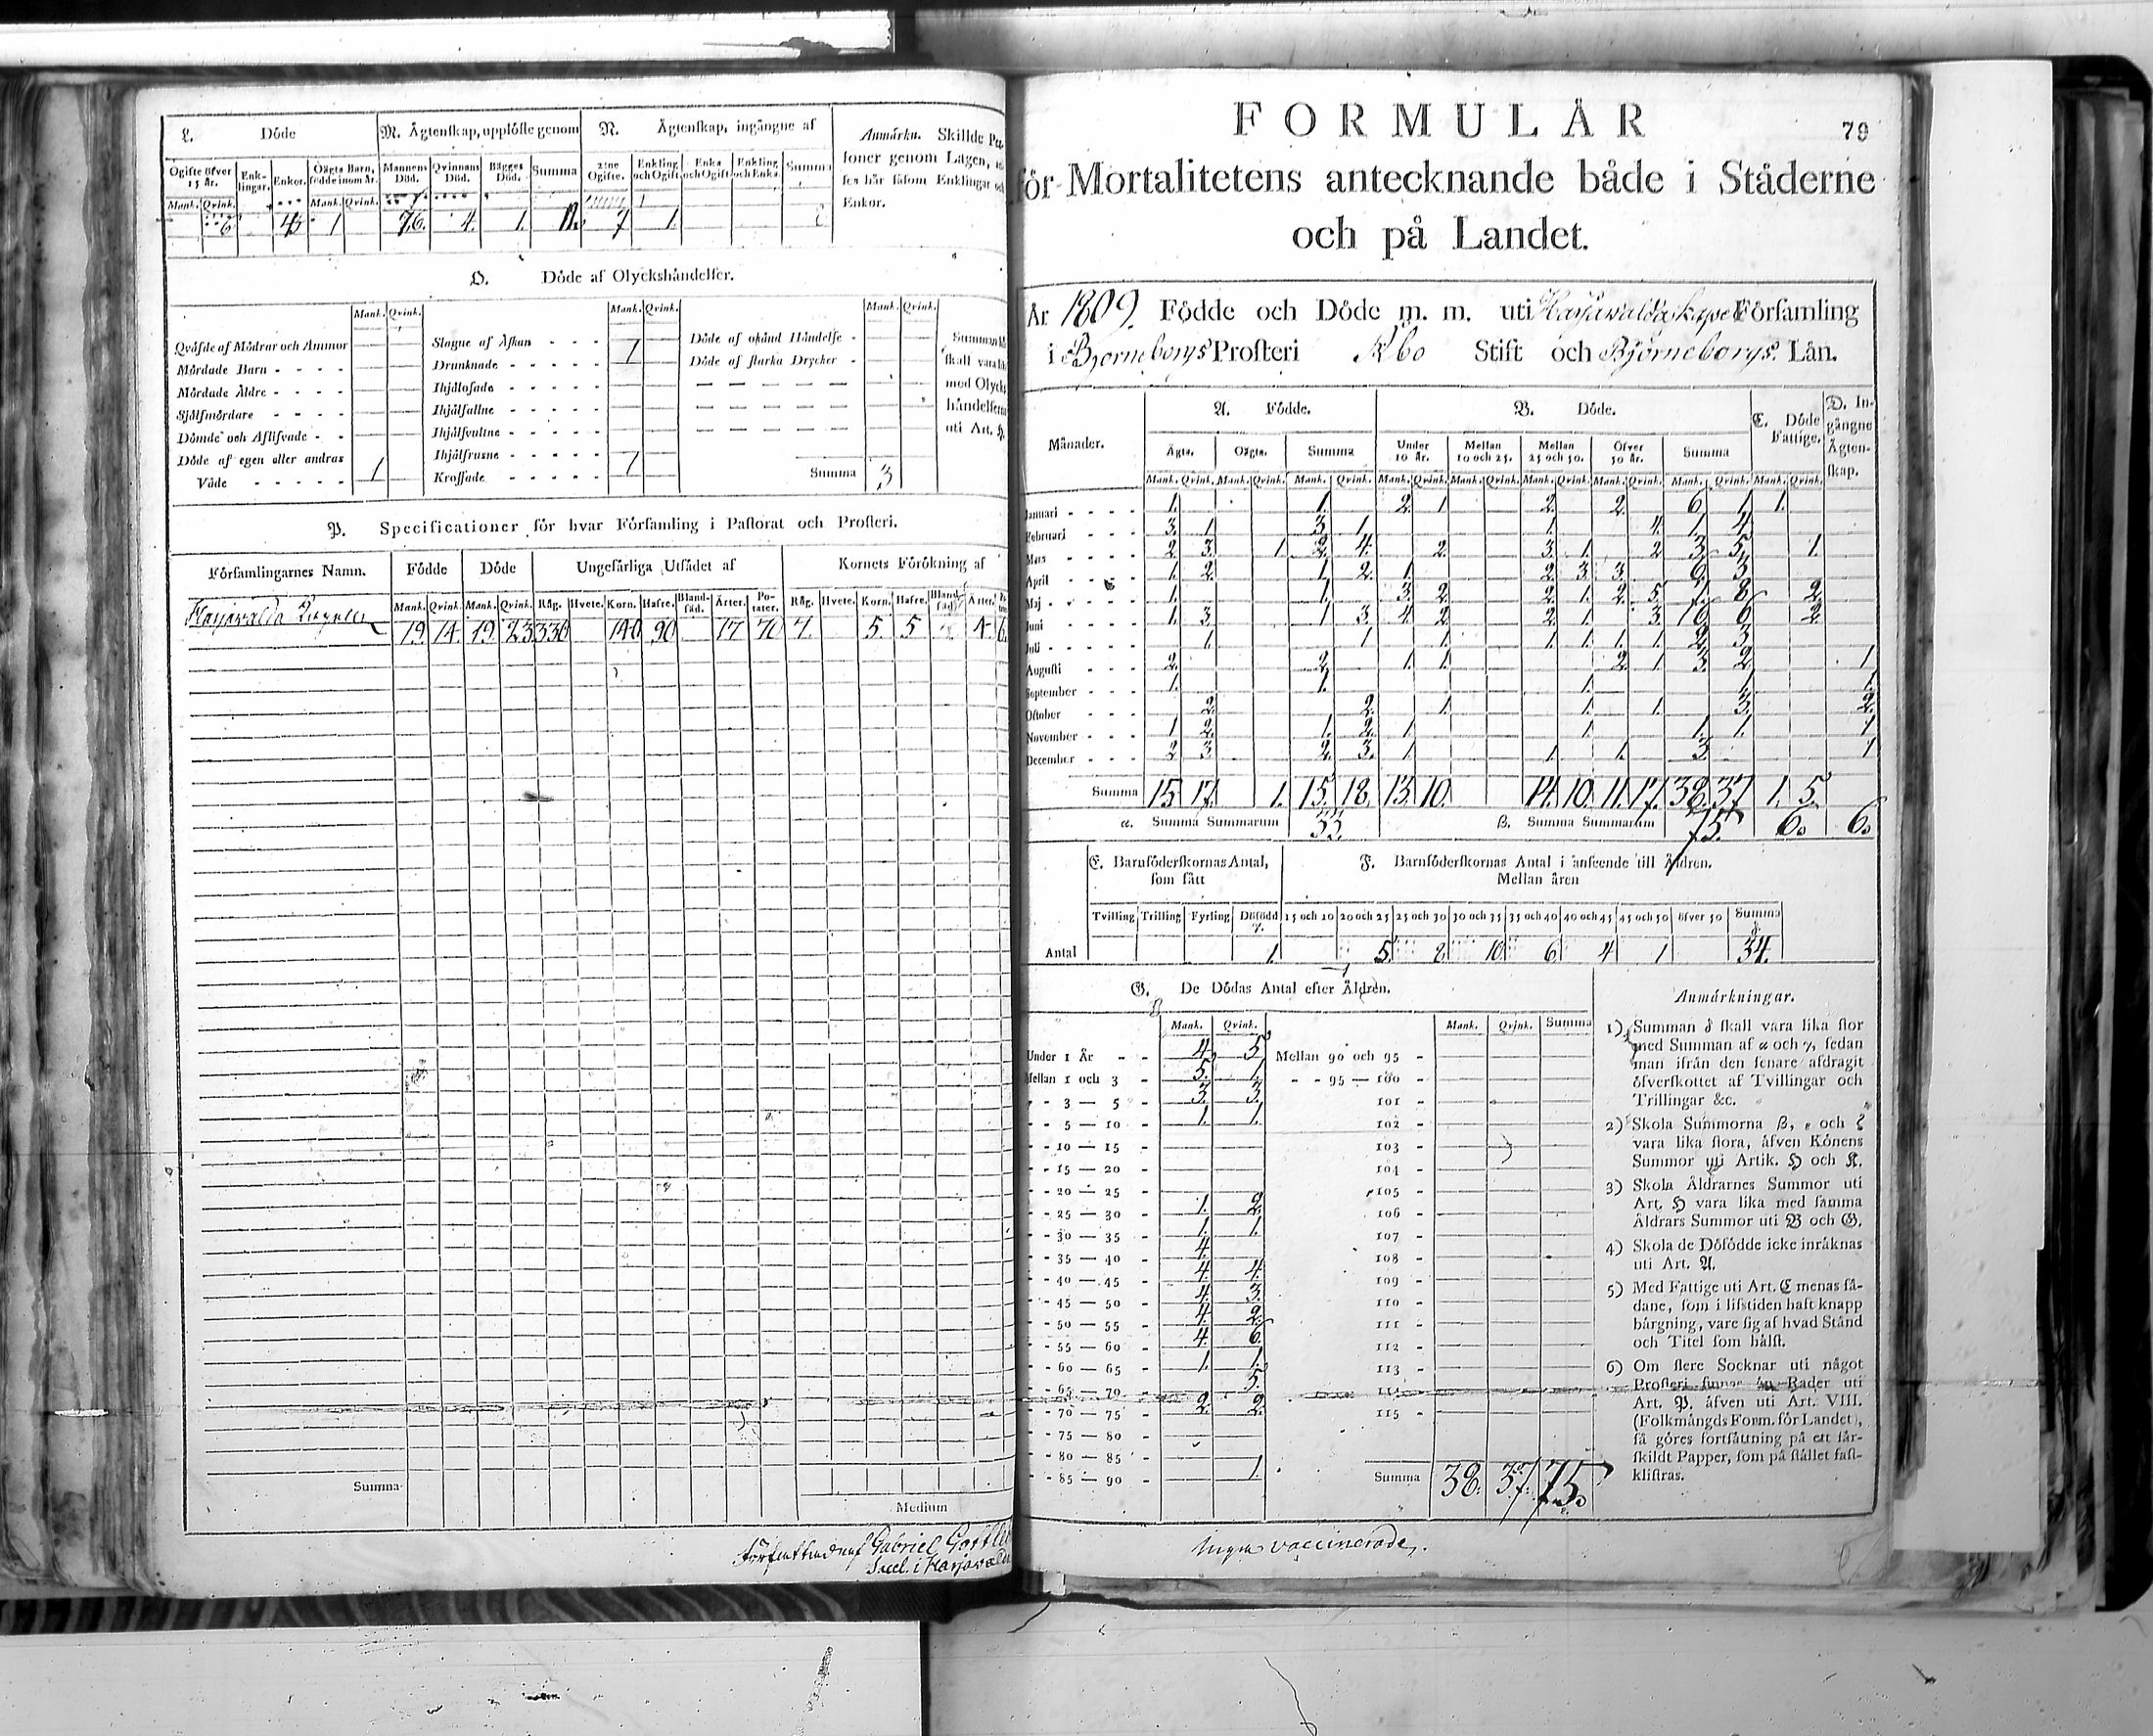 L. Döde
M. Ägtenskap, upplöste genom
N. Ägtenskap, ingångne af
Anmärkn. Skillde Per-
soner genom Lagen,
ses här såsom Enklingar och
Enkor.
Ogifte öfver 15 år. Enklingar. Enkor. Oägta Barn, födde inom år. Mannens Död. Qvinnans Död. Bägges Död. Summa 2:ne Ogifte. Enkling och Ogift. Enka och Ogift. Enkling och Enka. Summa
Mank. Qvink. Mank. Qvink.
6 1 4. 1. 7 1.
O. Döde af Olyckshändelser.
Mank. Qvink. Mank. Qvink. Mank. Qvink.
Qväfde af Mödrar och Ammor
Mördade Barn - - - -
Mördade Äldre - - - -
Självmördare - - - -
Dömde och Aflifvade - -
Döde af egen eller andras
Våde - - - - - 1
Slagne af Åskan - - -
Drunknade - - - - - 1
Ihjälosade - - - -
Ihjälfallne - - - - -
Ihjälsvultne - - - - -
Ihjälfrusne - - - - -
Krossade - - - - - 1
Döde af okänd Händelse -
Döde af starka Drycker -
Summa 3
Summan
skall vara lika
med Olycks-
händelserna
uti Art. H.
P. Specificationer för hvar Församling i Pastorat och Prosteri.
Församlingarnes Namn. Födde Döde Ungefärliga Utsädet af Kornets Förökning af
Mank. Qvink. Mank. Qvink. Råg. Hvete. Korn. Hafre. Blandsäd. Ärter. Potater. Råg. Hvete. Korn. Hafre. Blandsäd. Ärter.
19. 14. 19. 23 336 140 90 17 70 7. 5. 5 4. 6
Summa
Medium
Gabriel
FORMULÄR
79
för Mortalitetens antecknande både i Städerne
och på Landet.
År 1809. Födde och Döde m. m. uti Harjawalda Kapell Församling
i Björneborgs Prosteri Åbo Stift och Björneborgs Län.
Månader. A. Födde. B. Döde. C. Döde Fattige. D. Ingångne Ägtenskap.
Ägta. Oägta. Summa Under 10 år. Mellan 10 och 25. Mellan 25 och 50. Öfver 50 år. Summa
Mank. Qvink. Mank. Qvink. Mank. Qvink. Mank. Qvink. Mank. Qvink. Mank. Qvink. Mank. Qvink. Mank. Qvink. Mank. Qvink.
Januari - - - - 1. 1. 2. 1 2. 2. 6. 1. 1.
Februari - - - 3. 1 3. 1. 1. 4. 1. 4.
Mars - - - - 2. 3. 1 2. 4. 2. 3. 1. 2 3. 5. 1.
April - - - - 1. 2. 1. 2. 1. 2. 3. 3. 6. 3.
Maj - - - - 1. 1. 3. 2. 2. 1. 2. 5. 7. 8. 2.
Juni - - - - 1. 3. 1 3. 4. 2. 2. 1. 3. 6. 6. 2.
Juli - - - - 1. 1 1. 1. 1. 1. 1. 2. 3.
Augusti - - - 2. 2. 1. 1. 2. 1. 3. 2. 1
September - - - 1. 1. 1. 1. 1.
October - - - 2. 2. 1. 1. 1. 3. 2.
November - - - 1 2. 1. 2. 1. 1 1. 1. 1
December - - - 2 3. 2. 3. 1 1. 1. 3. 1
Summa 15. 17. 1. 15. 18. 13. 10. 14. 10. 11. 17. 38. 37 1. 5.
α. Summa Summarum 33. β. Summa Summarum 75. 6. 6.
E. Barnsöderskornas Antal, som fått
F. Barnsöderskornas Antal i anseende till Åldren.
Mellan åren
Tvilling Trilling Fyrling Dödfödd 15 och 20 20 och 25 25 och 30 30 och 35 35 och 40 40 och 45 45 och 50 öfver 50 Summa
Antal 1. 5. 8 10 6 4 1 34.
G. De Dödas Antal efter Åldren.
Mank. Qvink. Mank. Qvink. Summa
Under 1 År - - 4. 5
Mellan 1 och 3 - 5. 1.
- - 3 — 5 - 3. 3.
- - 5 — 10 - 1. 1.
- - 10 — 15 -
- - 15 — 20 -
- - 20 — 25 -
- - 25 — 30 - 1. 2.
- - 30 — 35 - 1. 1.
- - 35 — 40 - 4.
- - 40 — 45 - 4. 4.
- - 45 — 50 - 4. 3.
- - 50 — 55 - 4. 2.
- - 55 — 60 - 4. 6.
- - 60 — 65 - 1. 1.
- - 65 — 70 - 5.
- - 70 — 75 - 2. 2.
- - 75 — 80 -
- - 80 — 85 -
- - 85 — 90 - 1.
Mellan 90 och 95 -
- - 95 — 100 -
101 -
102 -
103 -
104 -
105 -
106 -
107 -
108 -
109 -
110 -
111 -
112 -
113 -
114 -
115 -
Summa 38. 37. 75.
Anmärkningar.
1) Summan δ skall vara lika stor
med Summan af α och γ, sedan
man ifrån den senare afdragit
öfverskottet af Tvillingar och
Trillingar &c.
2) Skola Summorna β, ε och ζ
vara lika stora, äfven Könens
Summor uti Artik. H och K.
3) Skola Åldrarnes Summor uti
Art. H vara lika med samma
Åldrars Summor uti B och G.
4) Skola de Döfödde icke inräknas
uti Art. A.
5) Med Fattige uti Art. C menas så-
dane, som i lifstiden haft knapp
bärgning, vare sig af hvad Stånd
och Titel som hälst.
6) Om flere Socknar uti något
Prosteri finnas än Rader uti
Art. P. äfven uti Art. VIII.
(Folkmängds Form. för Landet),
så göres fortsättning på ett sär-
skildt Papper, som på stället fast-
klistras.
Ingen vaccinerade.